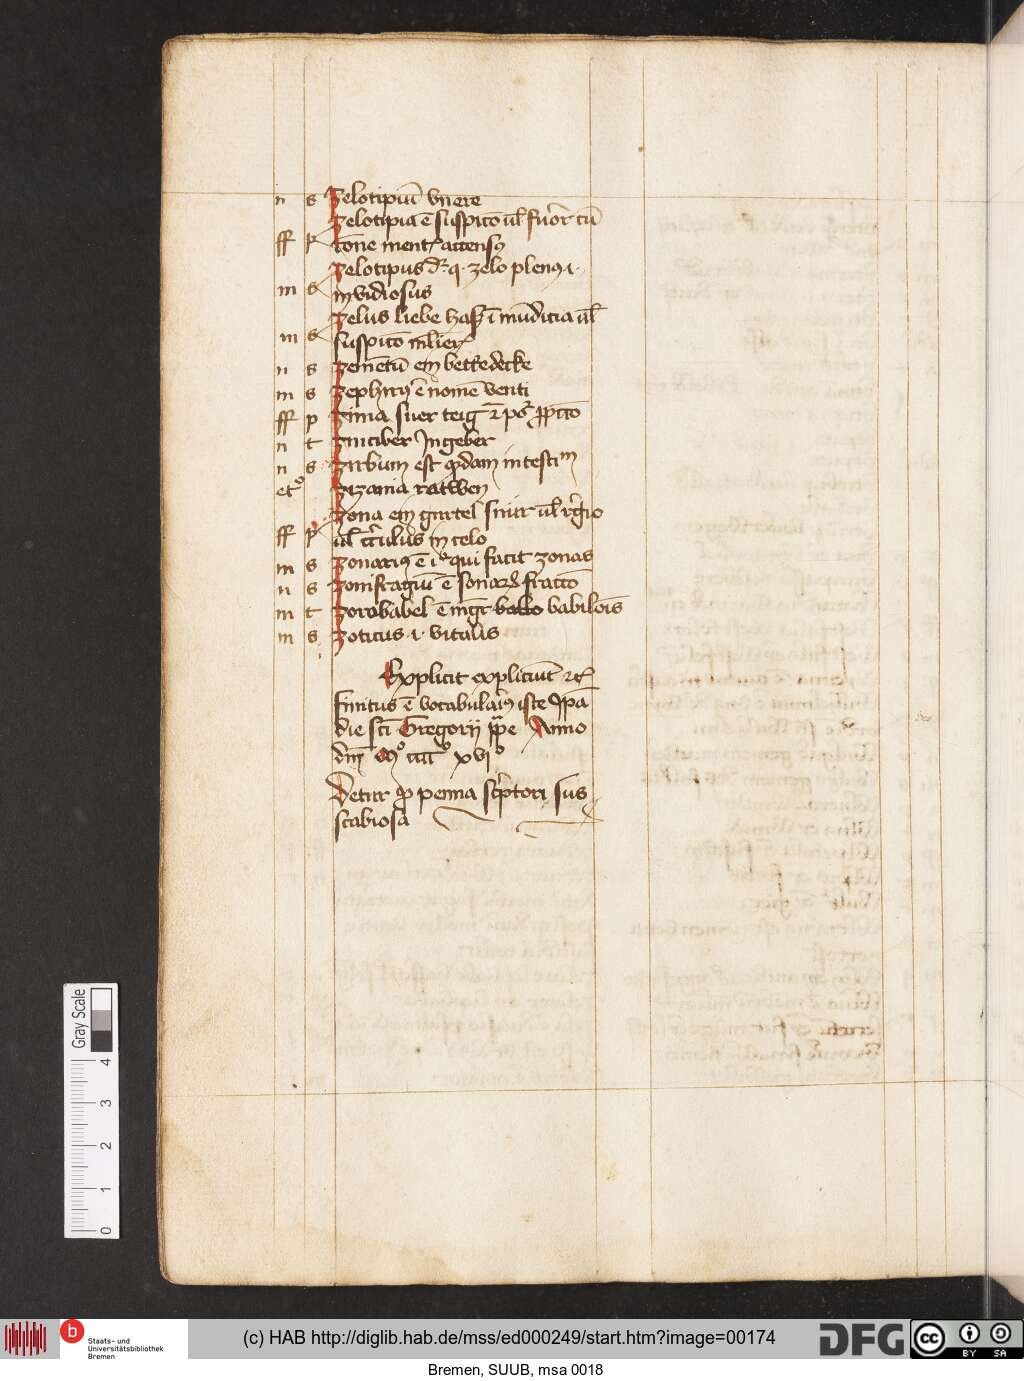 n s Zelotipiū vnere
Zelotipia ē suspico vl̄ furor cū
ff p cōne ment accensꝰ
Zelotipus dr̄ q zelo plenꝰ ·i·
m s invidiosus
Zelus liebe haß ī mūdicia vl̄
m s suspicō ml̄ier
n s Zemētū ein betkedecke
m s Zephirꝰ ē nomē venti
ff p Zima suer teig
n t Zinciber Ingeber
n s Zirbum est qdam intestiᵐ
etᵒ Zizania ratwen
Zona ein gurtel snur vl̄
ff p vl̄ cir̄culus in celo
m s Zonariꝰ ē iᵒ qui facit zonas
n s Zonifragiū ē sonaꝝ fractō
m t Zorobabel ē mgr̄ babilōis
m s Zoticus ·i· vitalis
Explicit expliciūt
Finitus ē vocabulariꝰ iste
die scī Gregorii ppe Anno
dn̄i mᵒ ccccᵒ xviᵒ
Detur p penna scptori sus
scabiosa
Gray Scale
4
3
2
1
0
b
Staats- und
Universitätsbibliothek
Bremen
(c) HAB http://diglib.hab.de/mss/ed000249/start.htm?image=00174
DFG
cc BY SA
Bremen, SUUB, msa 0018